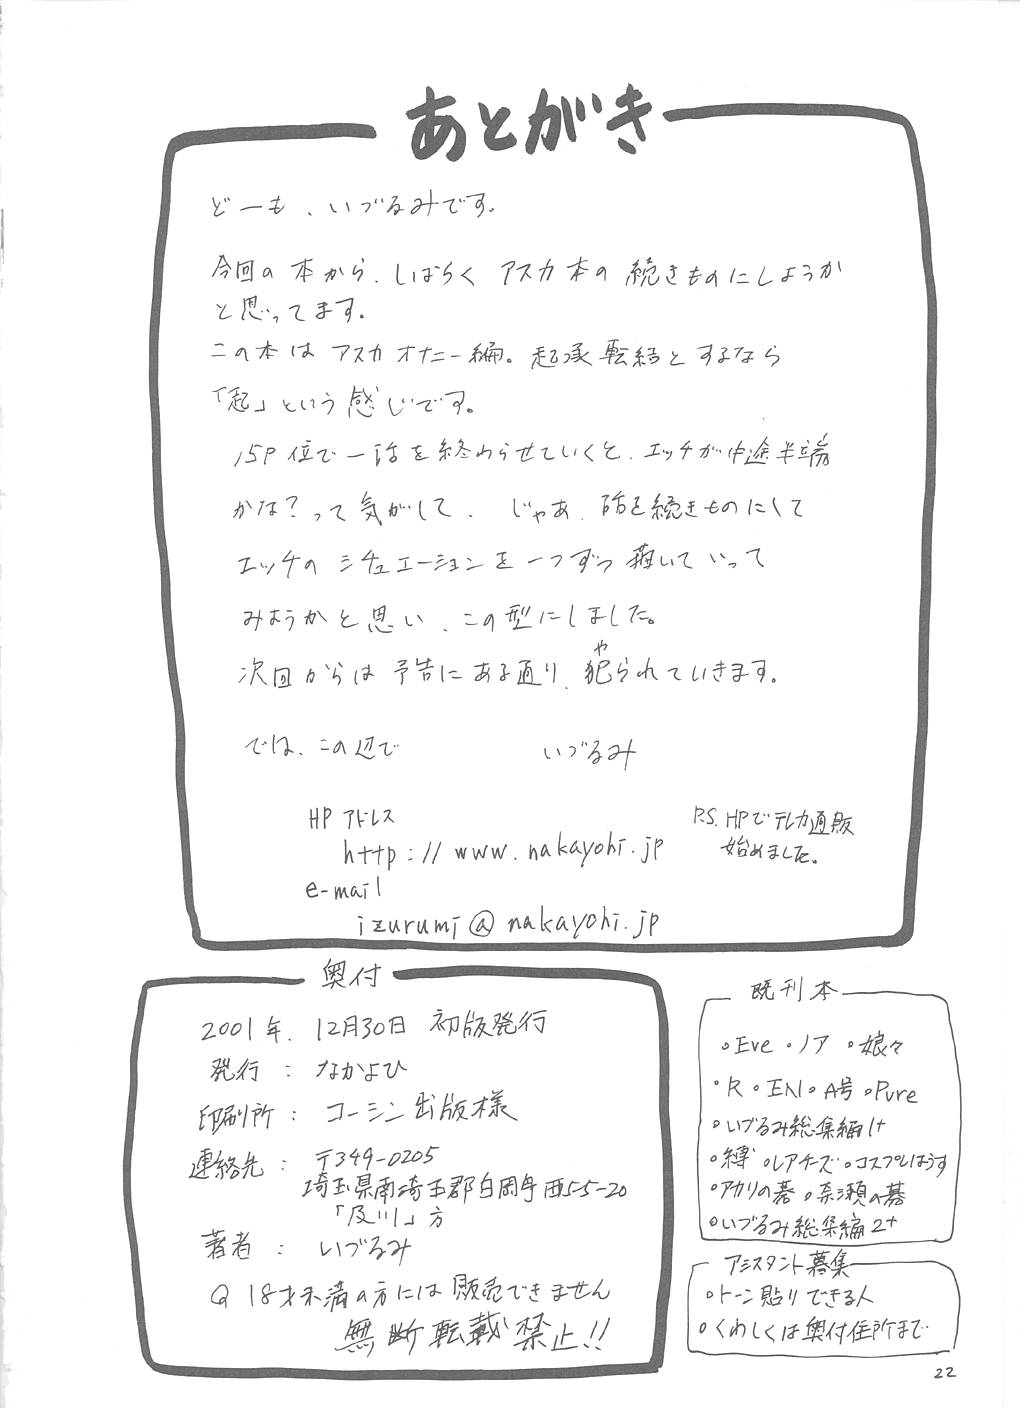 あとがき
どーも、いづるみです。
今回の本から、しばらく アスカ本の 続きものにしようか
と思ってます。
この本は アスカオナニー編。起承転結とするなら
「起」という感じです。
15P位で一話を終わらせていくと、エッチが中途半端
かな？って気がして、じゃあ、話を続きものにして
エッチの シチュエーションを一つずつ 描いていって
みようかと思い、この型にしました。
次回からは 予告にある通り、犯(や)られていきます。
では、この辺で いづるみ
HPアドレス
http://www.nakayohi.jp
e-mail
izurumi@nakayohi.jp
P.S. HPでテレカ通販
始めました。
奥付
2001年、12月30日 初版発行
発行：なかよひ
印刷所：コーシン出版様
連絡先：〒349-0205
埼玉県南埼玉郡白岡町西5-5-20
「及川」方
著者：いづるみ
18才未満の方には販売できません
無断転載禁止!!
既刊本
◦Eve ◦ノア ◦娘々
◦R ◦ENI ◦A号 ◦Pure
◦いづるみ総集編1+
◦縛 ◦レアチーズ ◦コスプレはうす
◦アカリの碁 ◦奈瀬の碁
◦いづるみ総集編2+
アシスタント募集
◦トーン貼りできる人
◦くわしくは奥付住所まで
22